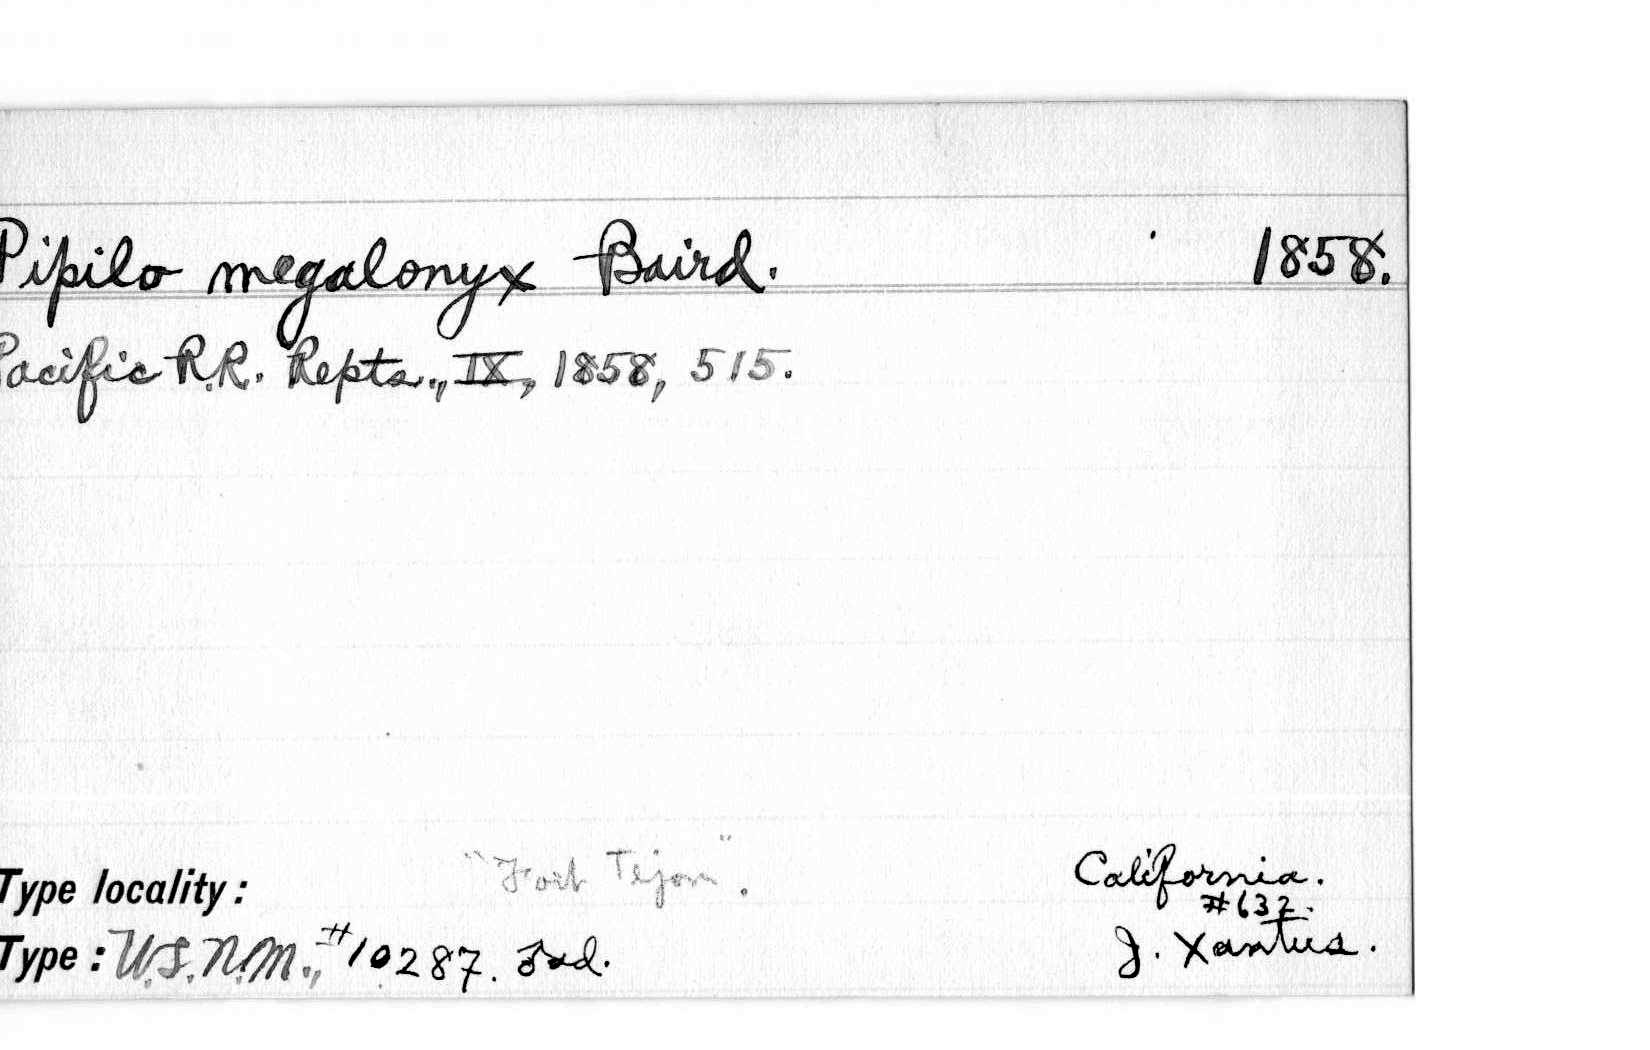 Pipilo megalonyx Baird. 1858.
Pacific R.R. Repts., IX, 1858, 515.
Type locality: "Fort Tejon". California.
#632.
Type: U.S.N.M., #10287. J. Xantus.